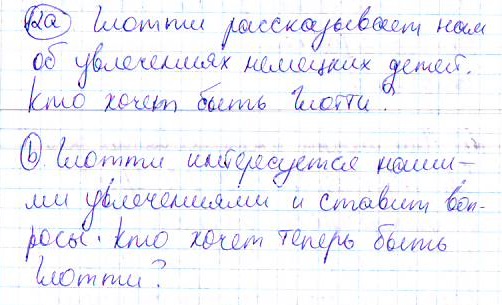 2a Шотти рассказывает нам
об увлечениях немецких детей.
Кто хочет быть Шотти?
b Шотти интересуется наши-
ми увлечениями и ставит воп-
росы. Кто хочет теперь быть
Шотти?